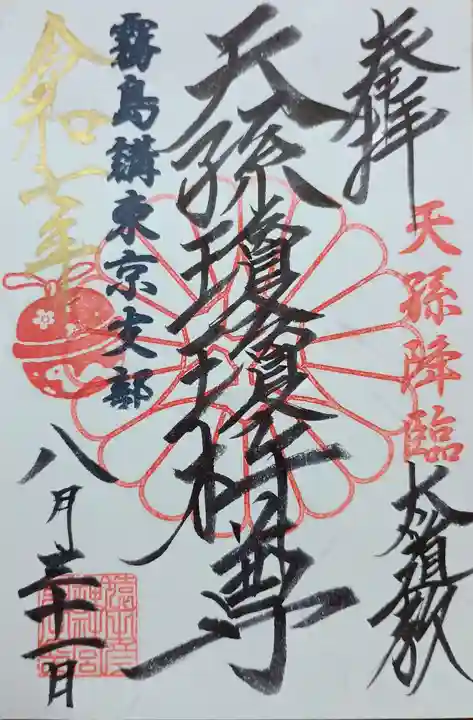 奉拝
天孫降臨
大道教
天孫瓊瓊杵尊
霧島講東京支部
令和七年
八月三十一日